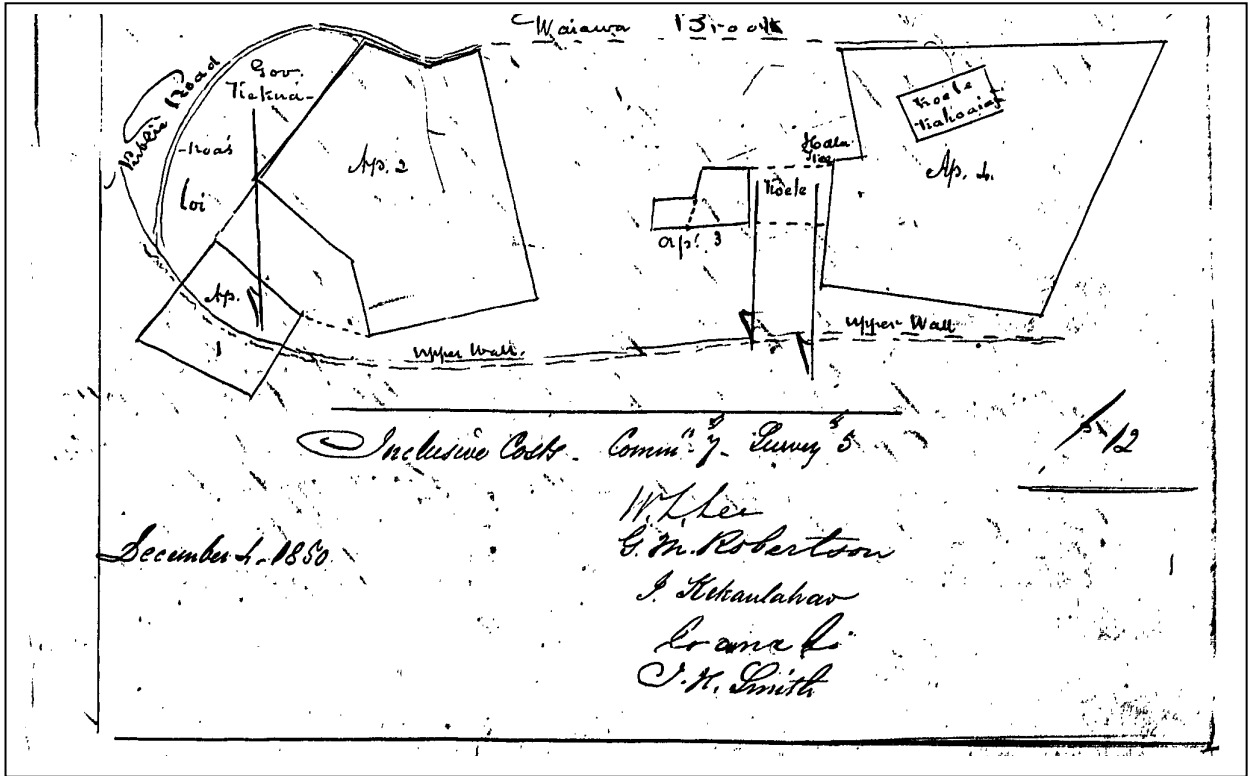 Waiawa Brook
Public Road
Gov.
Kekua-
-noa's
loi
Ap. 2
Koele
Ap. 4.
Koele
Ap. 3
Ap.
1
Upper Wall.
Upper Wall
Inclusive Costs - Comm.rs 7 - Survey 5
12
December 4. 1850
W. L. Lee
G. M. Robertson
J. Kekaulahao
Ioane Ii
J. H. Smith